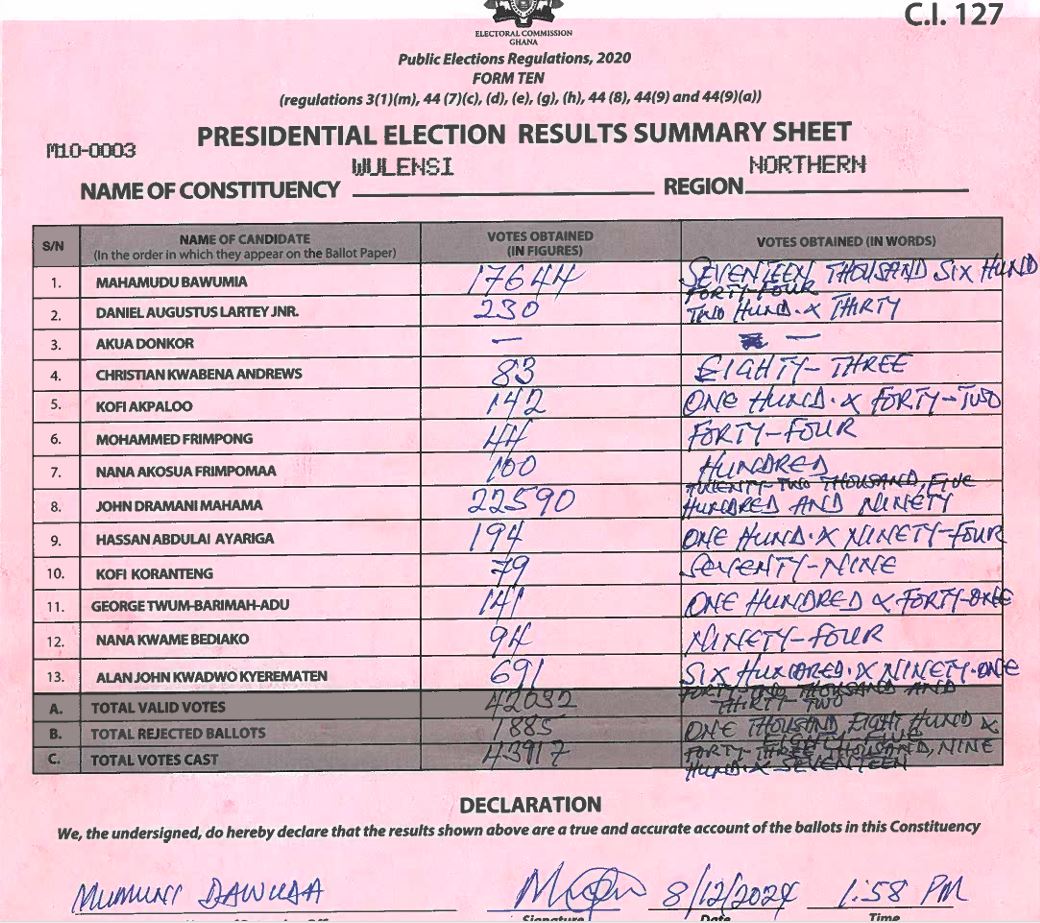 C.I. 127
ELECTORAL COMMISSION
GHANA
Public Elections Regulations, 2020
FORM TEN
(regulations 3(1)(m), 44 (7)(c), (d), (e), (g), (h), 44 (8), 44(9) and 44(9)(a))
PRESIDENTIAL ELECTION RESULTS SUMMARY SHEET
M10-0003
NAME OF CONSTITUENCY WULENSI REGION NORTHERN
S/N NAME OF CANDIDATE (In the order in which they appear on the Ballot Paper) VOTES OBTAINED (IN FIGURES) VOTES OBTAINED (IN WORDS)
1. MAHAMUDU BAWUMIA 17644 SEVENTEEN THOUSAND SIX HUND FORTY-FOUR
2. DANIEL AUGUSTUS LARTEY JNR. 230 TWO HUND. & THIRTY
3. AKUA DONKOR — —
4. CHRISTIAN KWABENA ANDREWS 83 EIGHTY-THREE
5. KOFI AKPALOO 142 ONE HUND. & FORTY-TWO
6. MOHAMMED FRIMPONG 44 FORTY-FOUR
7. NANA AKOSUA FRIMPOMAA 100 HUNDRED
8. JOHN DRAMANI MAHAMA 22590 TWENTY-TWO THOUSAND, FIVE HUNDRED AND NINETY
9. HASSAN ABDULAI AYARIGA 194 ONE HUND. & NINETY-FOUR
10. KOFI KORANTENG 79 SEVENTY-NINE
11. GEORGE TWUM-BARIMAH-ADU 141 ONE HUNDRED & FORTY-ONE
12. NANA KWAME BEDIAKO 94 NINETY-FOUR
13. ALAN JOHN KWADWO KYEREMATEN 691 SIX HUNDRED. & NINETY-ONE
A. TOTAL VALID VOTES 42032 FORTY-TWO THOUSAND AND THIRTY-TWO
B. TOTAL REJECTED BALLOTS 1885 ONE THOUSAND, EIGHT HUND & EIGHTY-FIVE
C. TOTAL VOTES CAST 43917 FORTY-THREE THOUSAND, NINE HUND & SEVENTEEN
DECLARATION
We, the undersigned, do hereby declare that the results shown above are a true and accurate account of the ballots in this Constituency
MUMUNI 8/12/2024 1:58 PM
Signature Date Time